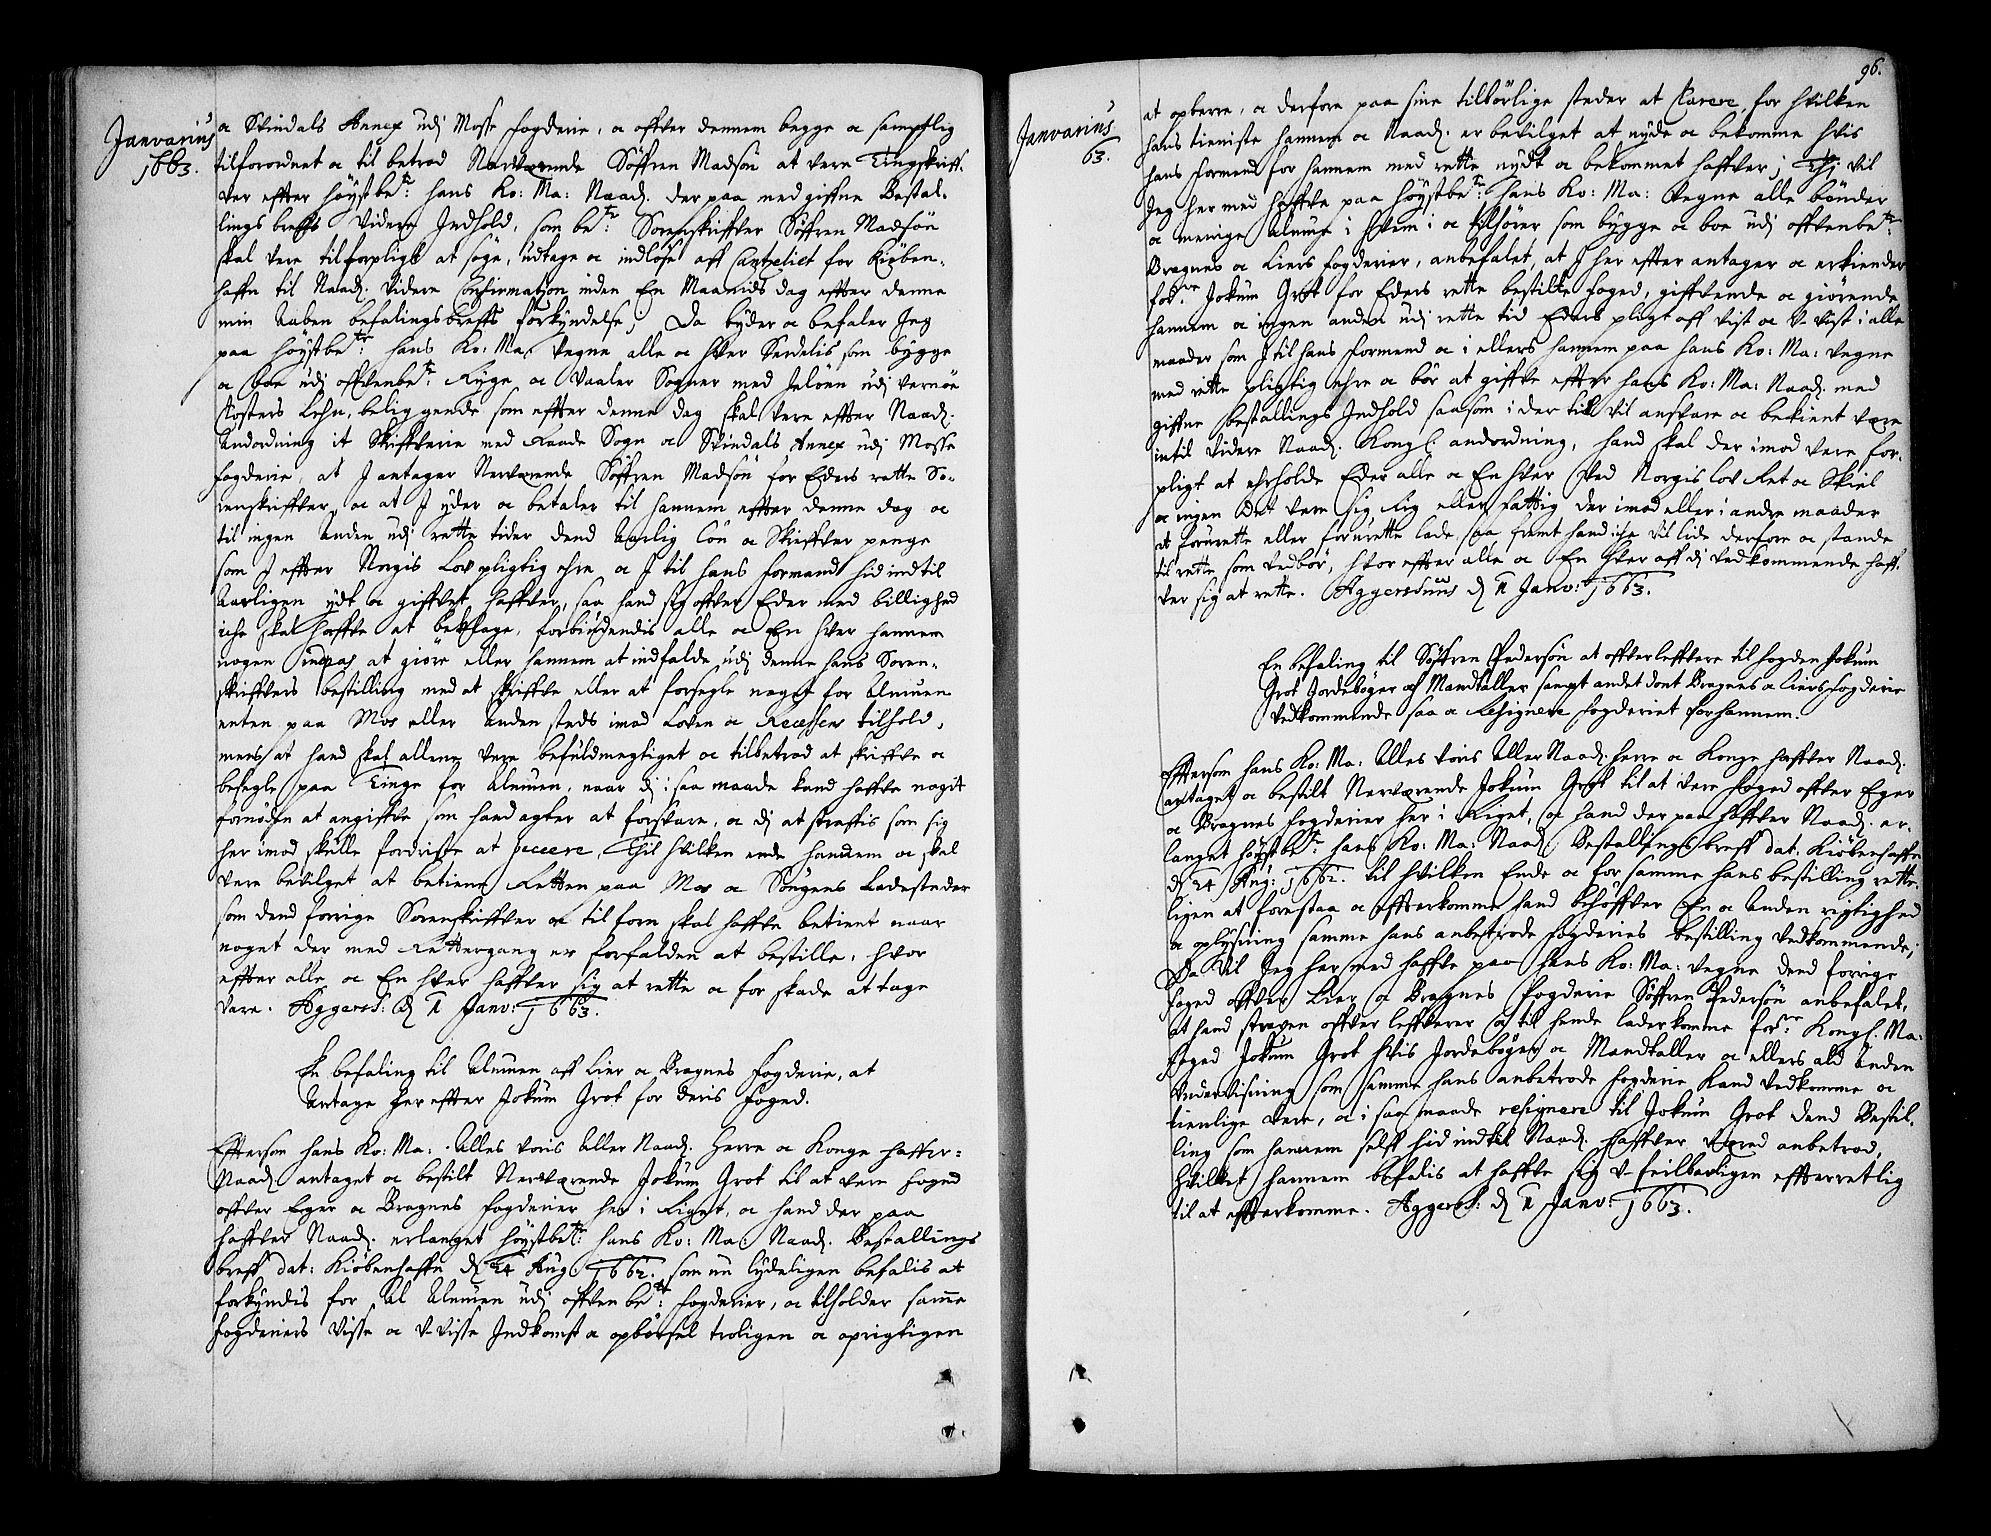 Janvarius
1663.
a Svindals Annex udj Mosse fogderie, a offver dennem begge a samptlig
tilforordnet a til betrod Nerværende Söffren Madsön at vere Tingskriff-
ver effter höystbe.te: hans Ko: Ma: Naad. der paa med giffne Bestal-
lings breffs videre Indhold, som be.te: Sorenskriffver Söffren Madsön
skal vere tilforpligt at söge, udtage a indlöse aff Cantzeliet for Kiöben-
haffn til Naad. videre Confirmation inden En Maanids dag effter denne
min Aaben befalingsbreffs forkyndelse, Da byder a befaler Jeg
paa höystbe.te: hans Ko: Ma: vegne alle a hver Serdelis som bygge
a boe udj offvenbe.te: Rygge a Vaaler Sogner med Jelöen udj Vernöe
Klosters Lehn, beliggende som effter denne dag skal vere effter Naad.
Andordning it Skriffverie med Raade Sogn a Svindals Annex udj Mosse
fogderie, at J antager Nerværende Söffren Madsön for Eders rette So-
renskriffver, a at J yder a betaler til hannem effter denne dag a
til ingen Anden udj rette tider dend Aarlig Lön a Skriffver penge
som J effter Norgis Lov pligtig ehre a J til hans formand hid ind til
Aarligen ydt a giffvet haffver, saa hand sig offver Eder med billighed
iche skal haffve at beklage, forbiudendis alle a En hver hannem
nogen indpas at giöre eller hannem at indfalde udj denne hans Soren-
skriffvers bestilling med at skriffve eller at forsegle noget for Almuen
enten paa Mos eller Anden steds imod Loven a Recessens tilhold,
mens at hand skal allene vere befuldmegtiget a tilbetrod at skriffve a
besegle paa Tinge for Almuen, naar dj i saa maade kand haffve nogit
fornöden at angiffve som hand agter at forsvare, a dj at straffis som sig
her imod skulle fordriste at peccere, Thil hvilken ende hannem a skal
vere bevilget at betiene Retten paa Mos a Songens Ladesteder
som dend forrige Sorenskriffver a til forn skal haffve betient naar
noget der med Rettergang er forfalden at bestille, hvor
effter alle a En hver haffver sig at rette a for skade at tage
vare. Aggersh: d. 1 Janv: 1663.
En befaling til Almuen aff Lier a Bragnes fogderie, at
Antage her effter Jokum Grot for deris foged.
Effterson hans Ko: Ma: Alles voris Aller Naad. Herre a Konge haffver
Naad. antaget a bestilt Nerværende Jokum Grot til at vere foged
offver Eger a Bragnes fogderier her i Riget, a hand der paa
haffver Naad. erlanget höystbe.te: hans Ko: Ma: Naad. Bestallings
breff dat: Kiöbenhaffn d. 24 Aug: 1662. som nu lydeligen befalis at
forkyndis for Al Almuen udj offven be.te: fogderier, a tilholder samme
fogderiers visse a v-visse Indkomst a opbörsel troligen a oprigtigen
96.
Janvarius
63.
at opberre, a derfore paa sine tilbörlige steder at klarere, for hvilken
hans tieniste hannem a Naad. er bevilget at nyde a bekomme hvis
hans formend for hannem med rette nydt a bekommet haffver; Thj vil
Jeg her med haffve paa höystbe.te: hans Ko: Ma: vegne alle bönder
a menige Almue i hvem i a tilhörer som bygge a boe udj offvenbe.te:
Bragnes a Liers fogderier, anbefalet, at J her effter antager a erkiender
for.ne Jokum Grot for Eders rette bestilte foged, giffvende a giörende
hannem a ingen anden udj rette tid Eders pligt aff vist a v-vist i alle
maader som J til hans formend a i ellers hannem paa hans Ko: Ma: vegne
med rette pligtig ehre a bör at giffve effter hans Ko: Ma: Naad. med
giffne bestallings Indhold saasom i der till vil ansvare a bekient være
intil videre Naad. Kongl. andordning, hand skal der imod vere for-
pligt at ehrholde Eder alle a En hver ved Norgis lov Ret a Skiel
a ingen Det vere sig Rig eller fattig der imod eller i andre maader
at forurette eller forurette lade, saa fremt hand iche vil lide derfore a stande
til rette som vedbör, hvor effter alle a En hver aff dj vedkommende haff-
ver sig at rette. Aggershuus d. 1 Janv: 1663.
En befaling til Söffren Pedersön at offverleffvere til fogden Jokum
Grot Jordeböger a Mandtaller sampt andet dend Bragnes a Liers fogderie
vedkommende saa a Resignere fogderiet for hannem.
Effterson hans Ko: Ma: Alles voris Aller Naad. herre a Konge haffver Naad.
antaget a bestilt Nerværende Jokum Grot til at vere foged offver Eger
a Bragnes fogderier her i Riget, a hand der paa haffver Naad. er-
langet höystbe.te: hans Ko: Ma: Naad. Bestallings breff dat: Kiöbenhaffn
d. 24 Aug: 1662. til hvilken Ende a for samme hans bestilling rette-
ligen at forestaa a effterkomme hand behöffver En a Anden rigtighed
a oplysning samme hans anbetrode fogderies bestilling vedkommende;
Da vil Jeg her med haffve paa hans Ko: Ma: vegne dend forrige
foged offver Lier a Bragnes fogderie Söffren Pedersön anbefalet,
at hand straxen offver leffverer a til hende lader komme for.ne Kongl. Ma:
foged Jokum Grot hvis Jordeböger a Mandtaller a ellers ald Anden
Undervisning som samme hans anbetrode fogderie kand vedkomme a
tienlige vere, a i saa maade resignere til Jokum Grot dend Bestil-
ling som hannem self hid indtil Naad. haffver været anbetrod,
hvilket hannem befalis at haffve sig v-feilbarligen effterretlig
til at effterkomme. Aggersh: d. 1 Janv: 1663.